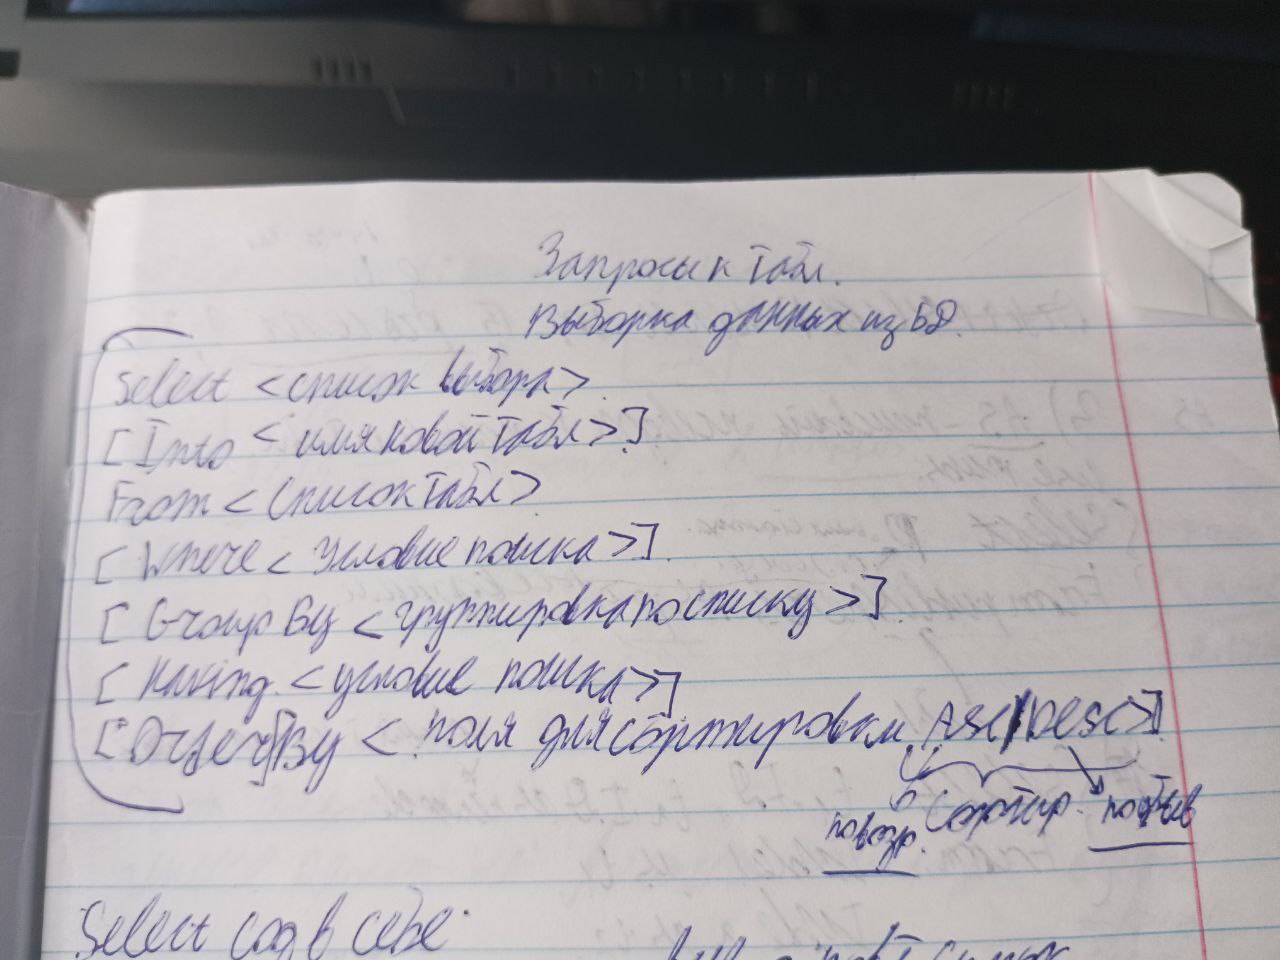 Запросы к табл.
Выборка данных из БД.
Select <список выбора>
[Into <имя новой табл>]
From <список табл>
[Where <условие поиска>]
[Group By <группировка по списку>]
[Having <условие поиска>]
[Order By <поля для сортировки, ASC/DESC>]
по возр. Сортир. по убыв
Select сод в себе